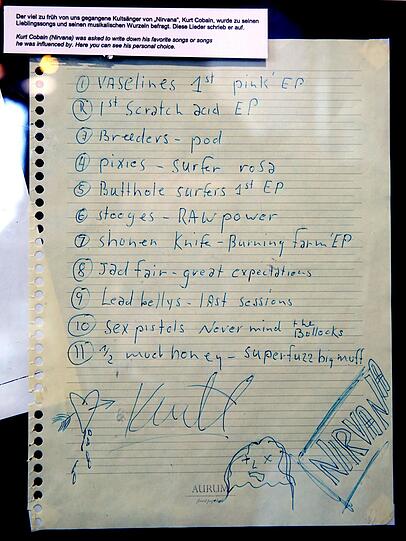 Der viel zu früh von uns gegangene Kultsänger von „Nirvana", Kurt Cobain, wurde zu seinen
Lieblingssongs und seinen musikalischen Wurzeln befragt. Diese Lieder schrieb er auf.
Kurt Cobain (Nirvana) was asked to write down his favorite songs or songs
he was influenced by. Here you can see his personal choice.
1 VASelines 1st pink EP
2 1st Scratch acid EP
3 Breeders - pod
4 pixies - surfer rosa
5 Butthole surfers 1st EP
6 stooges - RAW power
7 shonen Knife - Burning farm EP
8 Jad fair - great expectations
9 Leadbellys - last sessions
10 Sex pistols Never mind the Bollocks
11 1/2 mudhoney - superfuzz bigmuff
Kurt
NIRVANA
AURUM